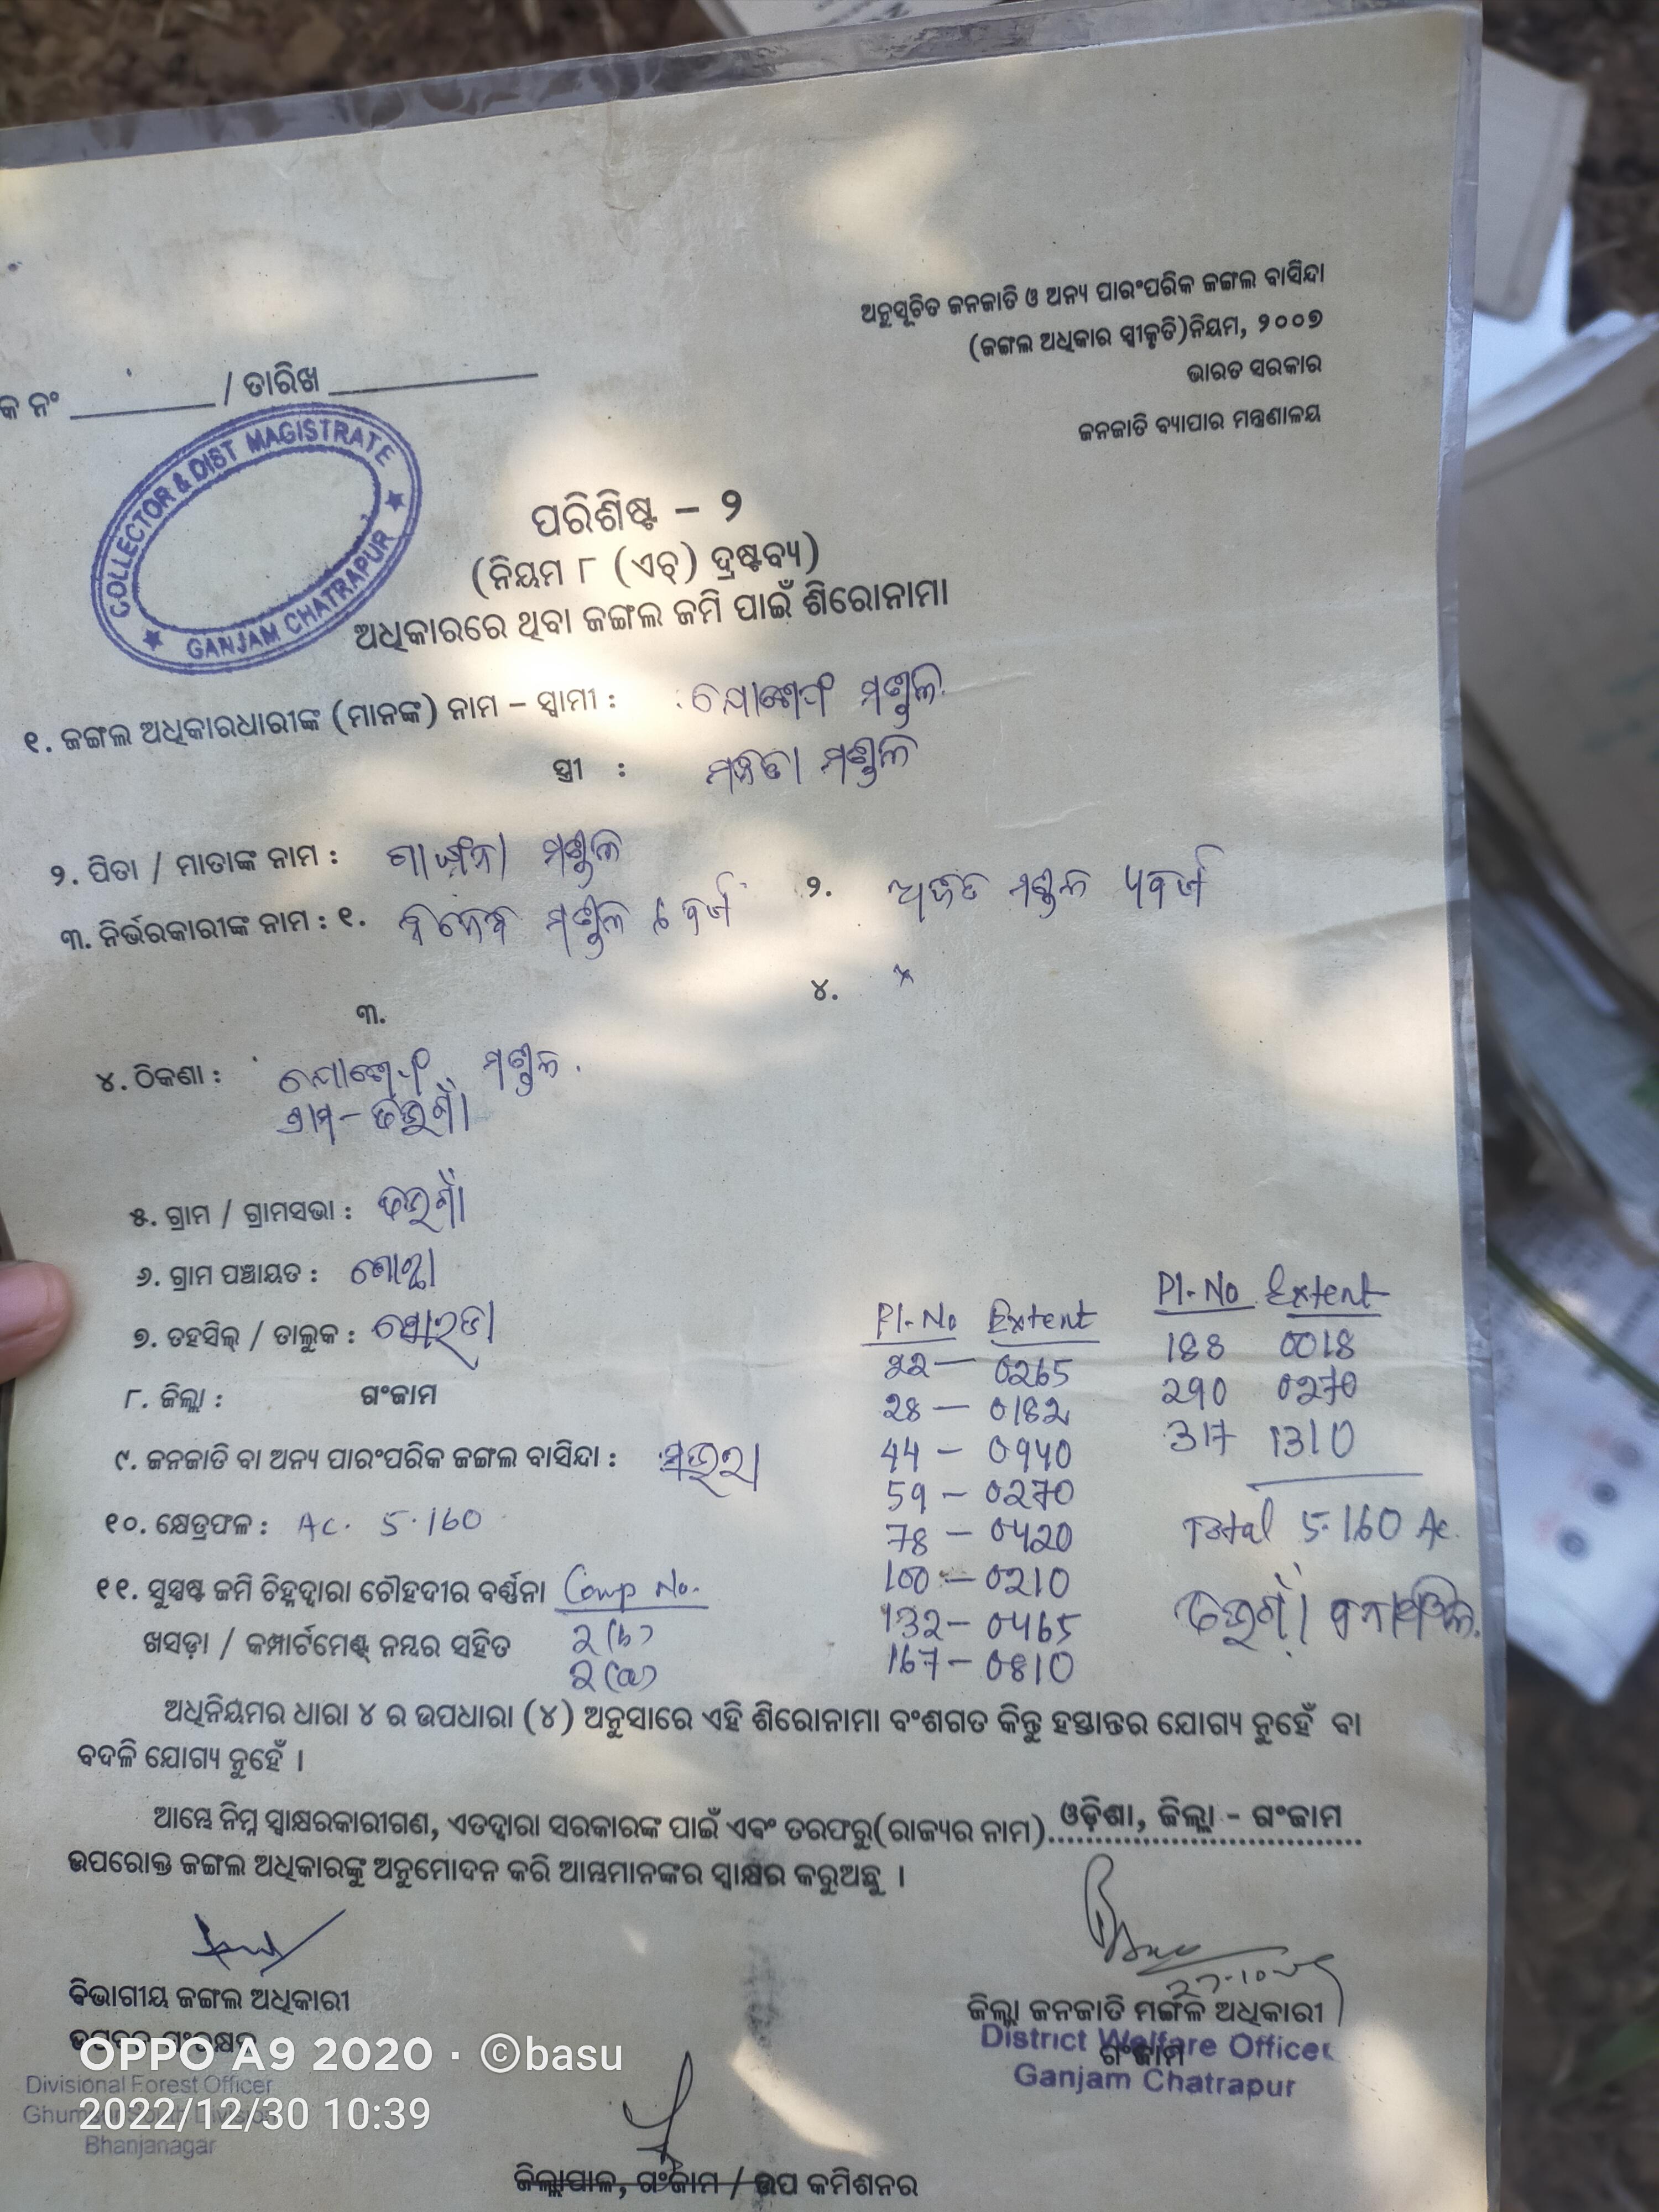 ଅନୁସୂଚିତ ଜନଜାତି ଓ ଅନ୍ୟ ପାରଂପରିକ ଜଙ୍ଗଲ ବାସିନ୍ଦା
(ଜଙ୍ଗଲ ଅଧିକାର ସ୍ୱୀକୃତି)ନିୟମ, ୨୦୦୭
ଭାରତ ସରକାର
ଜନଜାତି ବ୍ୟାପାର ମନ୍ତ୍ରଣାଳୟ
କ ନଂ / ତାରିଖ
COLLECTOR & DIST MAGISTRATE
GANJAM CHATRAPUR
ପରିଶିଷ୍ଟ – ୨
(ନିୟମ ୮ (ଏଚ୍) ଦ୍ରଷ୍ଟବ୍ୟ)
ଅଧିକାରରେ ଥିବା ଜଙ୍ଗଲ ଜମି ପାଇଁ ଶିରୋନାମା
୧. ଜଙ୍ଗଲ ଅଧିକାରଧାରୀଙ୍କ (ମାନଙ୍କ) ନାମ – ସ୍ୱାମୀ : ମଣ୍ଡଳ
ସ୍ତ୍ରୀ : ମଣ୍ଡଳ
୨. ପିତା / ମାତାଙ୍କ ନାମ : ମଣ୍ଡଳ
୩. ନିର୍ଭରକାରୀଙ୍କ ନାମ : ୧. ମଣ୍ଡଳ ୨. ମଣ୍ଡଳ
୩. ୪. ×
୪. ଠିକଣା : ମଣ୍ଡଳ
ଗ୍ରାମ –
୫. ଗ୍ରାମ / ଗ୍ରାମସଭା :
୬. ଗ୍ରାମ ପଞ୍ଚାୟତ :
୭. ତହସିଲ୍ / ତାଲୁକ : ସୋରଡା
୮. ଜିଲ୍ଲା : ଗଂଜାମ
୯. ଜନଜାତି ବା ଅନ୍ୟ ପାରଂପରିକ ଜଙ୍ଗଲ ବାସିନ୍ଦା : ସଉରା
୧୦. କ୍ଷେତ୍ରଫଳ : Ac. 5.160
୧୧. ସୁସ୍ପଷ୍ଟ ଜମି ଚିହ୍ନଦ୍ୱାରା ଚୌହଦୀର ବର୍ଣ୍ଣନା Comp No.
ଖସଡ଼ା / କମ୍ପାର୍ଟମେଣ୍ଟ୍ ନମ୍ବର ସହିତ 2(b)
2(a)
Pl-No Extent
22 — 0265
28 — 0182
44 — 0940
59 — 0270
78 — 0420
100 — 0210
132 — 0465
167 — 0810
Pl-No Extent
188 0018
290 0270
317 1310
Total 5.160 Ac.
ଅଧିନିୟମର ଧାରା ୪ ର ଉପଧାରା (୪) ଅନୁସାରେ ଏହି ଶିରୋନାମା ବଂଶଗତ କିନ୍ତୁ ହସ୍ତାନ୍ତର ଯୋଗ୍ୟ ନୁହେଁ ବା
ବଦଳି ଯୋଗ୍ୟ ନୁହେଁ ।
ଆମ୍ଭେ ନିମ୍ନ ସ୍ୱାକ୍ଷରକାରୀଗଣ, ଏତଦ୍ୱାରା ସରକାରଙ୍କ ପାଇଁ ଏବଂ ତରଫରୁ(ରାଜ୍ୟର ନାମ) ଓଡ଼ିଶା, ଜିଲ୍ଲା - ଗଂଜାମ
ଉପରୋକ୍ତ ଜଙ୍ଗଲ ଅଧିକାରଙ୍କୁ ଅନୁମୋଦନ କରି ଆମ୍ଭମାନଙ୍କର ସ୍ୱାକ୍ଷର କରୁଅଛୁ ।
ବିଭାଗୀୟ ଜଙ୍ଗଲ ଅଧିକାରୀ
Divisional Forest Officer
Ghumsur South Division
Bhanjanagar
ଜିଲ୍ଲା ଜନଜାତି ମଙ୍ଗଳ ଅଧିକାରୀ
ଗଂଜାମ
District Welfare Officer
Ganjam Chatrapur
ଜିଲ୍ଲାପାଳ, ଗଂଜାମ / ଉପ କମିଶନର
OPPO A9 2020 · ©basu
2022/12/30 10:39